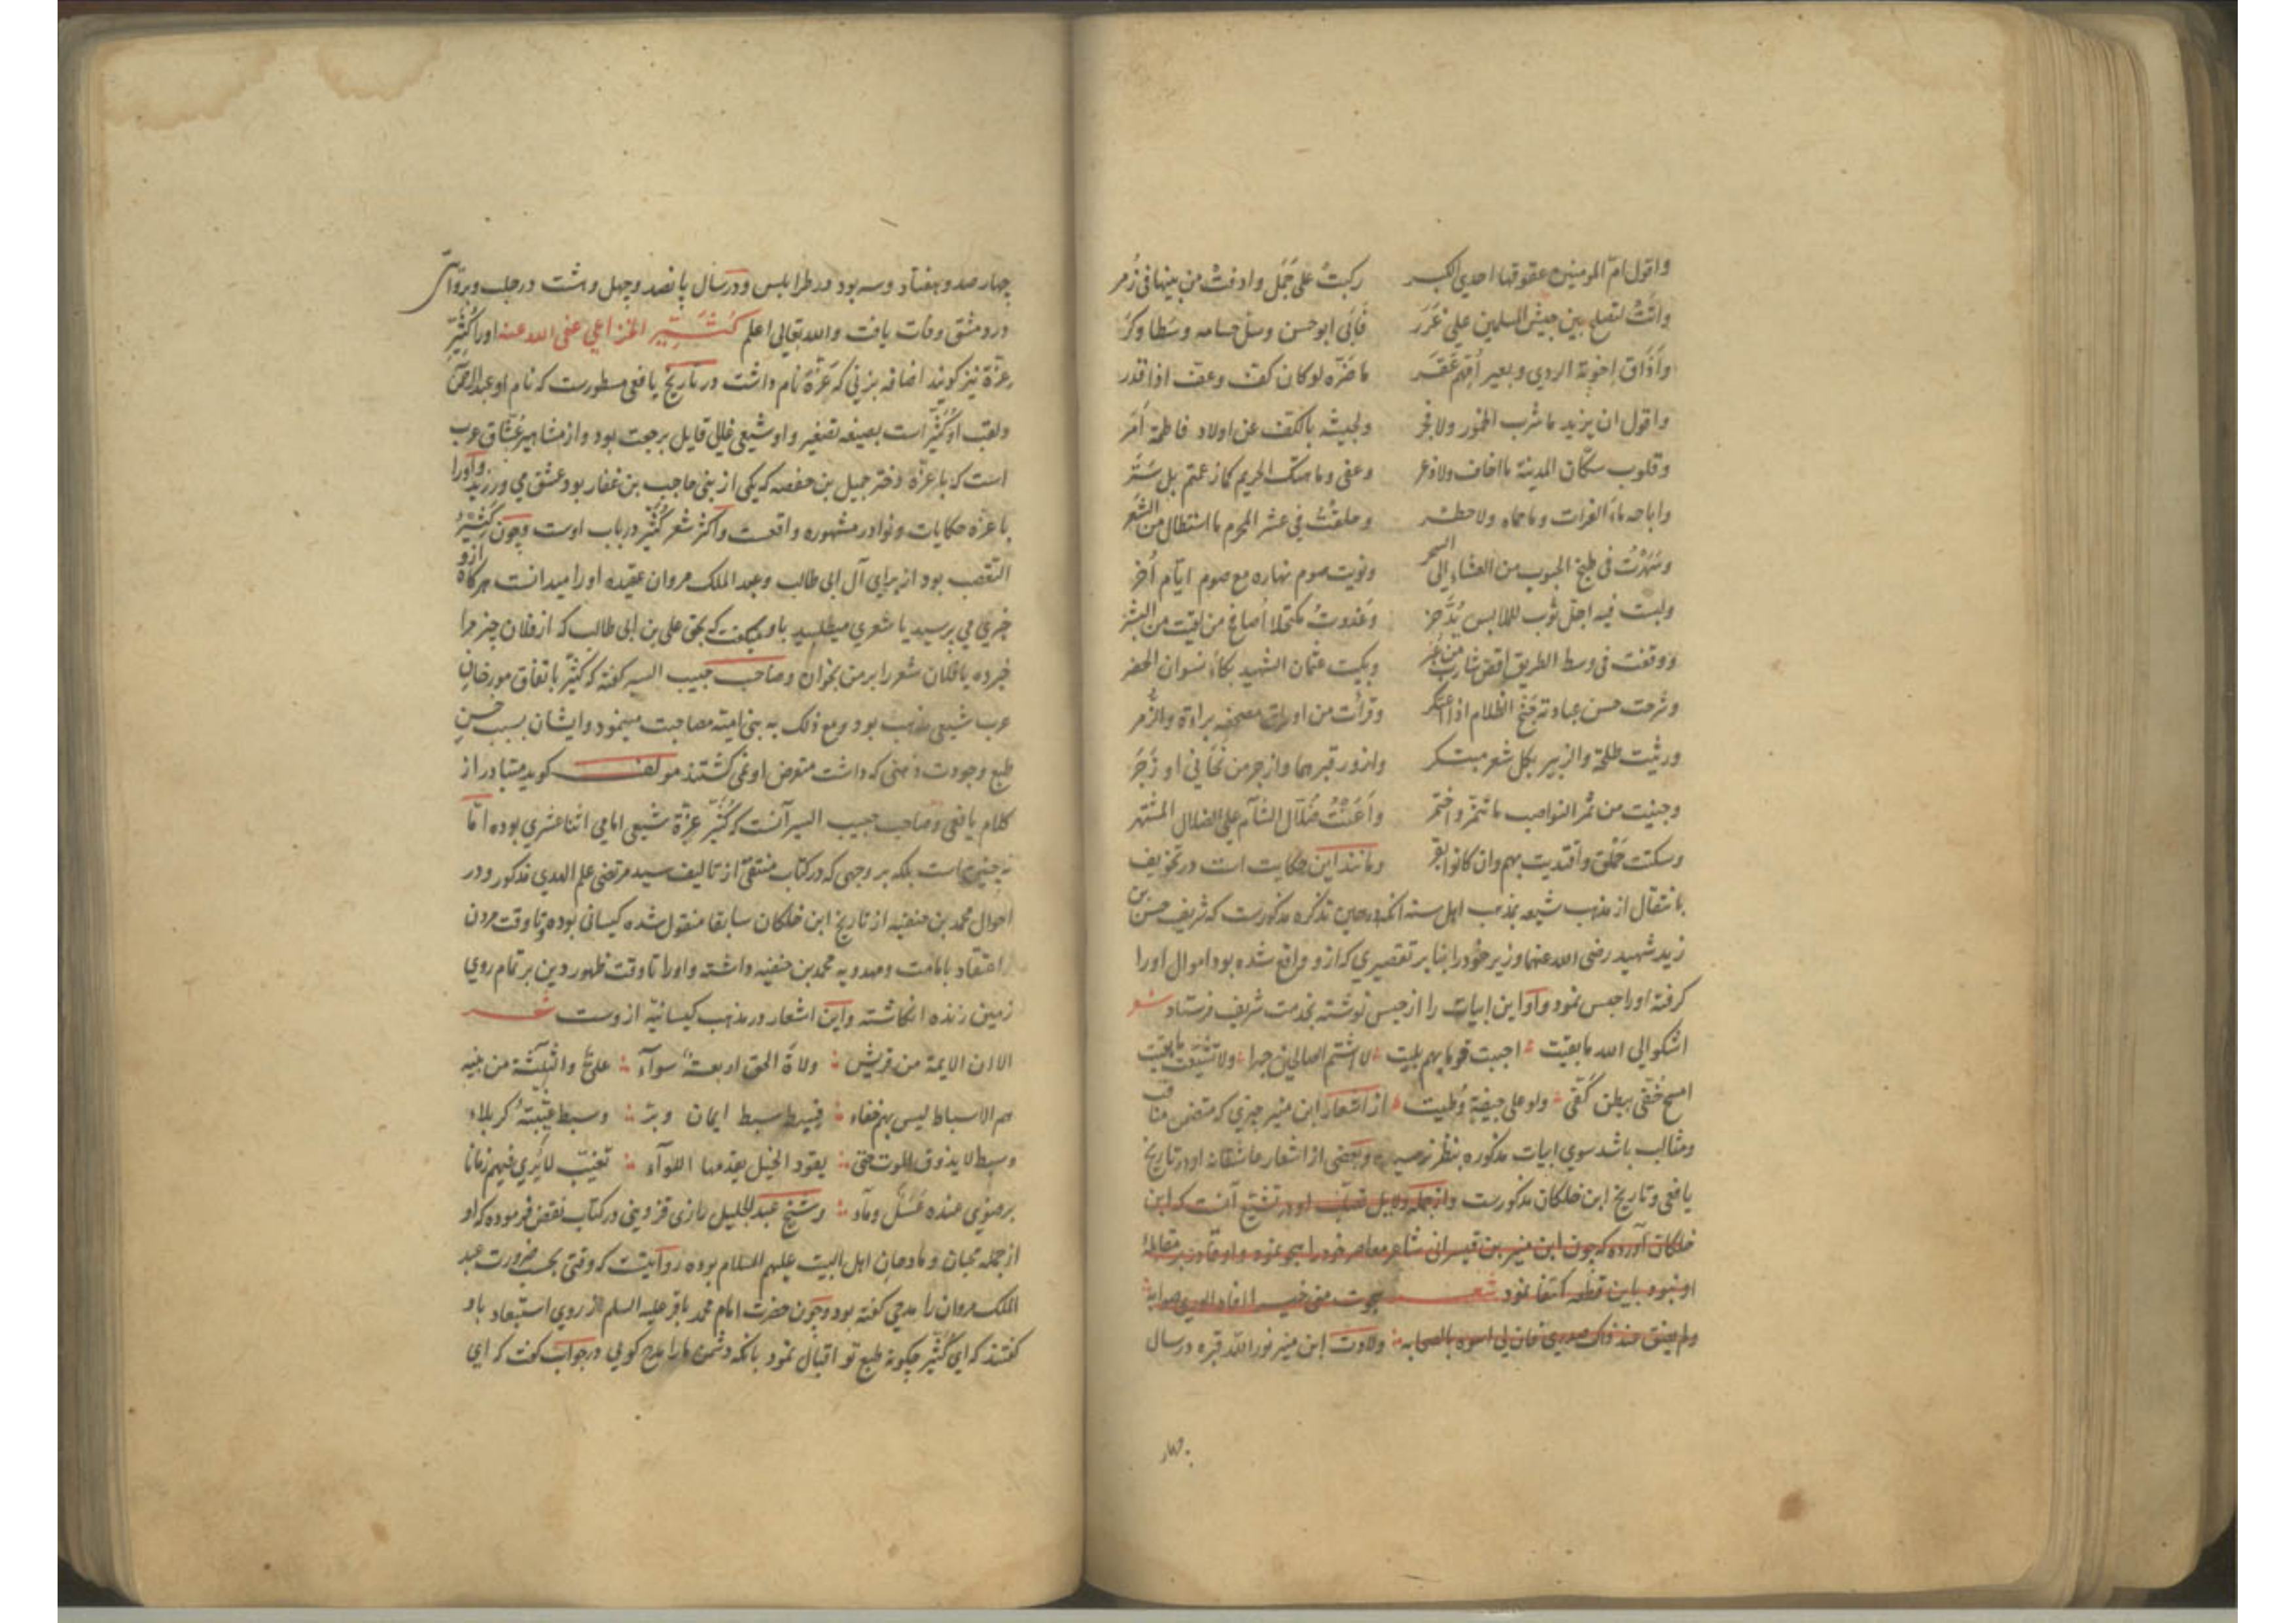 واقول ام المومنين عقوقها احدي الكبر ركبت على جمل وادفت من بينها في زمر
واتت لتصلح بين جيش المسلمين على غرر فاتى ابو حسن وسل حسامه وسطا وكر
واذاق اخوته الردي وبعير امهم عقر ما ضره لو كان كف وعف اذا قدر
واقول ان يزيد ما شرب الخمور ولا فجر ولجيشه بالكف عن اولاد فاطمة امر
وقلوب سكان المدينة ما اخاف ولا ذعر وعفى وما هتك الحريم كما زعمتم بل ستر
واباحه ماء الفرات وما حماه ولا حظر وحلقت في عشر المحرم ما استطال من الشعر
وسهرت في طبخ الحبوب من العشاء الى السحر ونويت صوم نهاره مع صوم ايام اخر
ولبست فيه اجل ثوب للملابس يدخر وغدوت مكتحلا اصافح من لقيت من البشر
ووقفت في وسط الطريق اقص شارب من عبر وبكيت عثمان الشهيد بكاء نسوان الحضر
وشرحت حسن عبادته جنح الظلام اذا اعتكر وقرات من اوراق مصحفه براءة والزمر
ورثيت طلحة والزبير بكل شعر مبتكر وازور قبرهما وازجر من نحاني او زجر
وجنيت من ثمر النواصب ما تتمر واختمر واعنت ضلال الشآم على الضلال المشتهر
وسكنت جلق واقتديت بهم وان كانوا بقر ومانند اين حكايت است در تخويف
بانتقال از مذهب شيعه بمذهب اهل سنه انكه در همين تذكره مذكورست كه شريف حسن بن
زيد شهيد رضى الله عنهما وزير خود را بنا بر تقصيري كه ازو واقع شده بود اموال او را
كرفته او را حبس نمود واو اين ابيات را از حبس نوشته بخدمت شريف فرستاد شعر
اشكو الى الله ما بقيت احببت قوما بهم بليت لا اشتم الصالحين جهرا ولا تشيعت ما بقيت
امسح خفى ببطن كفى ولو على جيفة وطيت از اشعار ابن منير چيزي كه متضمن مناقب
ومثالب باشد سوي ابيات مذكوره بنظر نرسيده وبعضى از اشعار عاشقانه او در تاريخ
يافعى وتاريخ ابن خلكان مذكورست وازجمله دلايل او در تشيع آنست كه ابن
خلكان آورده كه چون ابن منير بن قيسرانى شاعر معاصر خود را هجو نموده واو قادر بر مقابلهٔ
او نبود باين قطعه اكتفا نمود شعر هجوت منى خيرا افاد الورى صوابه
ولم يضق منذ ذاك صدري فان لي اسوه بالصحابه ولادت ابن منير نور الله قبره در سال
چهار
چهارصد وهفتاد وسه بود در طرابلس ودر سال پانصد وچهل وهشت در حلب وبروايتى
در دمشق وفات يافت والله تعالى اعلم كثير الخزاعي عفى الله عنه او را كثير
عزة نيز كويند اضافه بزنى كه عزة نام داشت در تاريخ يافعى مسطورست كه نام او عبد الرحمن
ولقب او كثير است بصيغه تصغير واو شيعى غالى قايل برجعت بود واز مشاهير عشاق عرب
است كه با عزة دختر جميل بن حفصه كه يكى از بنى حاجب بن غفار بود عشق مى ورزيد واو را
با عزه حكايات ونوادر مشهوره واقعست واكثر شعر كثير در باب اوست وچون كثير
التعصب بود از براي آل ابى طالب وعبد الملك مروان عقيده او را ميدانست هركاه ازو
خبري مى پرسيد يا شعري ميطلبيد باو ميكفت كه بحق على بن ابى طالب كه از فلان چيز مرا
خبر ده يا فلان شعر را بر من بخوان وصاحب حبيب السير كفته كه كثير باتفاق مورخان
عرب شيعى مذهب بود ومع ذلك به بنى اميه مصاحبت مينمود وايشان بسبب حسن
طبع وجودت ذهنى كه داشت متعرض او نمى كشتند مولف كويد متبادر از
كلام يافعى وصاحب حبيب السير آنست كه كثير عزة شيعى امامى اثنا عشري بوده اما
نه چنين است بلكه بر وجهى كه در كتاب منتقى از تاليف سيد مرتضى علم الهدي مذكور ودر
احوال محمد بن حنفيه از تاريخ ابن خلكان سابقا منقول شده كيسانى بوده وتا وقت مردن
اعتقاد بامامت ومهدويه محمد بن حنفيه داشته واو را تا وقت ظهور دين بر تمام روي
زمين زنده انكاشته واين اشعار در مذهب كيسانيه از وست شعر
الا ان الايمة من قريش ولاة الحق اربعة سوآء على والثلثة من بنيه
هم الاسباط ليس بهم خفاء فسبط سبط ايمان وبر وسبط غيبته كربلاء
وسبط لا يذوق الموت حتى يقود الخيل يقدمها اللوآء تغيب لا يري فيهم زمانا
برضوي عنده عسل وماء وشيخ عبد الجليل رازى قزوينى در كتاب نقض فرموده كه او
از جمله محبان ومادحان اهل البيت عليهم السلام بوده روايتست كه وقتى بحسب ضرورت عبد
الملك مروان را مدحى كفته بود وچون حضرت امام محمد باقر عليه السلم از روي استبعاد باو
كفتند كه اى كثير چكونه طبع تو اقبال نمود بانكه دشمن ما را مدح كويى در جواب كفت كه اي